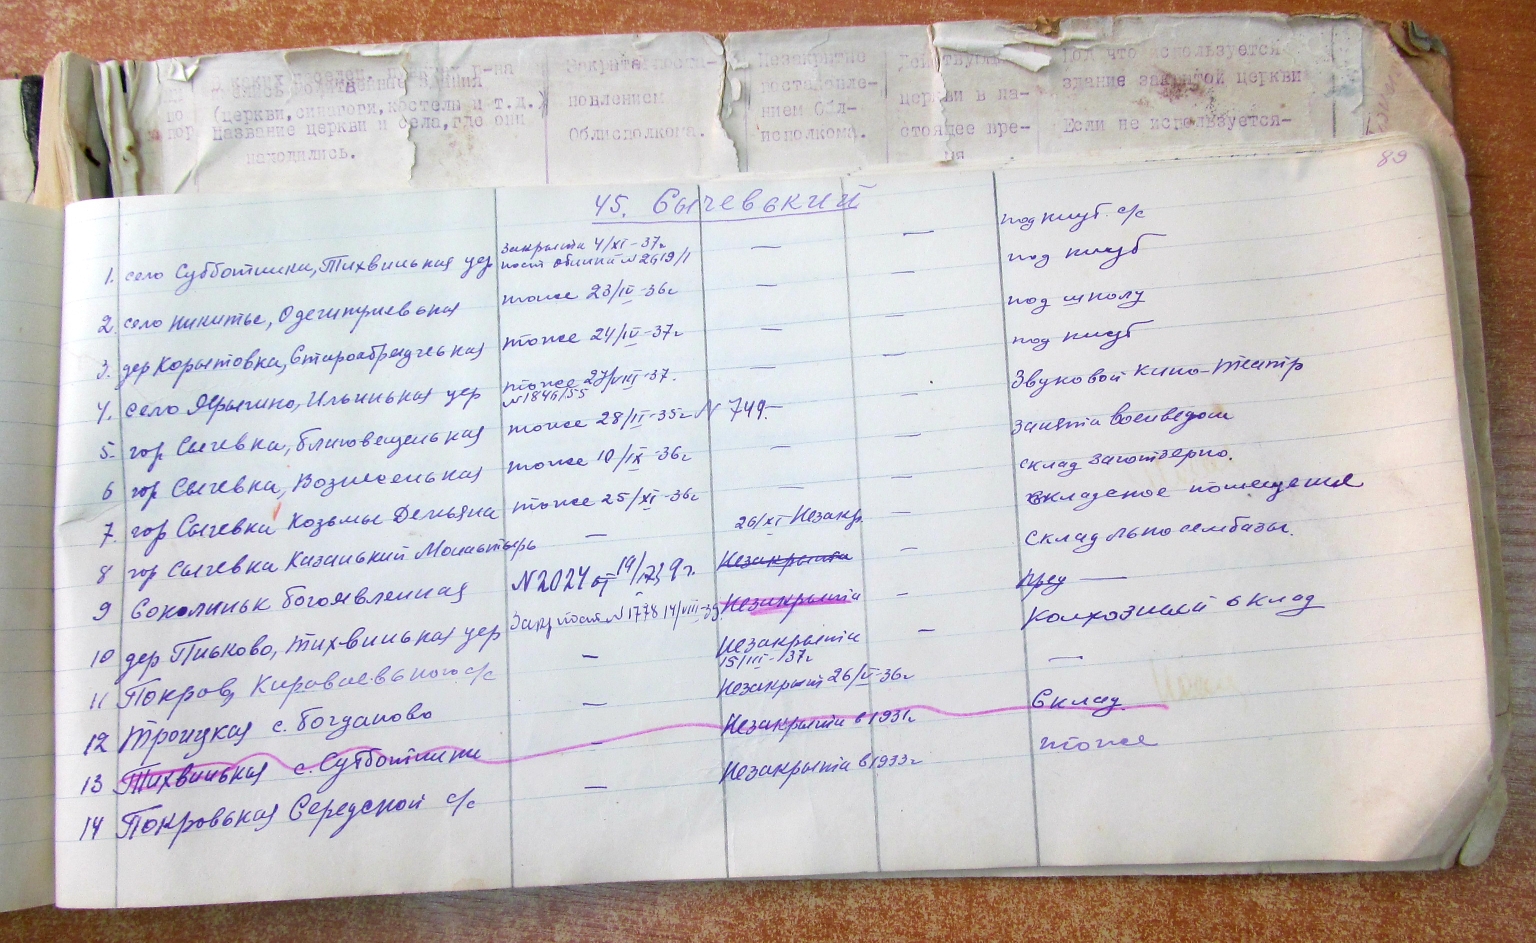 в каких р-на
(церкви, синагоги, костелы и т.д.)
Название церкви и села, где они
находились.
Закрыта поста-
новлением
Облисполкома.
Незакрытые
постановле-
нием Обл-
исполкома.
Действующ.
церкви в на-
стоящее вре-
мя
Под что используется
здание закрытой церкви
Если не используется-
89
45. Сычевский
1. село Субботники, Тихвинская цер закрыта 4/XI-37г пост облисп №2619/1 — — под клуб с/с
2. село Никитье, Одегитриевская тоже 23/IV-36г — — под клуб
3. дер Корытовка, Старообрядческая тоже 24/IV-37г — — под школу
4. село Ярыгино, Ильинская цер тоже 27/VIII-37. №1846/55 — — под клуб
5. гор Сычевка, Благовещенская тоже 28/II-35г № 749.— — Звуковой кино-театр
6 гор Сычевка, Вознесенская тоже 10/IX-36г — — занята Военведом
7. гор Сычевка Козьмы Демьяна тоже 25/XI-36г — — склад Заготзерно.
8 гор Сычевка Казанский Монастырь — 26/XI Незакр. — складское помещение
9 Соколинск Богоявленная №2024 от 19/ 39г. Незакрыта — Склад льносембазы.
10 дер Писково, Тихвинская цер Закр пост №1778 14/VIII-39 Незакрыта —
11 Покров, Караваевского с/с — Незакрыта 15/III-37г — Колхозный склад
12 Троицкая с. Богданово — Незакрыт 26/V-36г —
13 Тихвинская с. Субботники — Незакрыта в 1931г Склад
14 Покровская Середской с/с — Незакрыта в 1933г тоже